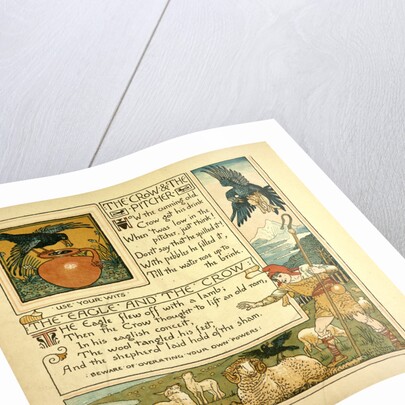 THE CROW & THE
PITCHER
HOW the cunning old
Crow got his drink
When 'twas low in the
pitcher, just think!
Don't say that he spilled it!
With pebbles he filled it,
Till the water rose up to
the brink.
USE YOUR WITS.
THE EAGLE AND THE CROW
THE Eagle flew off with a lamb;
Then the Crow thought to lift an old ram,
In his eaglish conceit,
The wool tangled his feet,
And the shepherd laid hold of the sham.
BEWARE OF OVERRATING YOUR OWN POWERS: